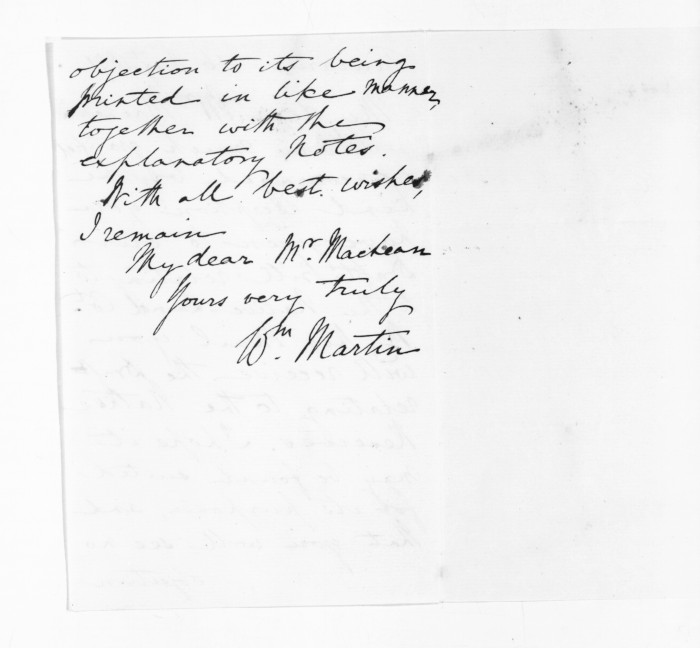 objection to its being
printed in like manner,
together with the
explanatory Notes.
With all best wishes,
I remain
My dear Mr. Maclean
Yours very truly
Wm. Martin